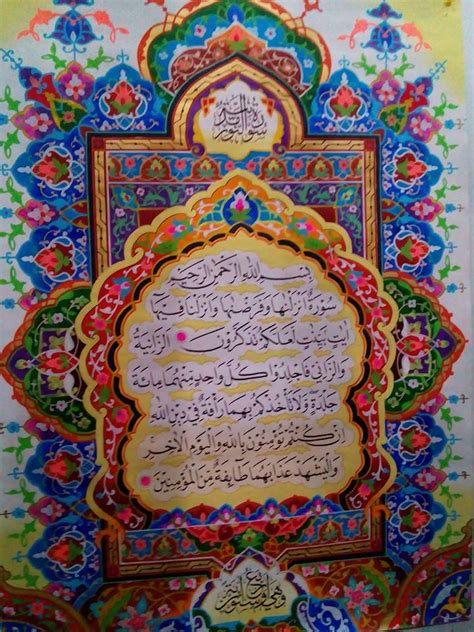 سُوْرَةُ النُّوْرِ
بِسْمِ اللهِ الرَّحْمٰنِ الرَّحِيْمِ
سُوْرَةٌ اَنْزَلْنٰهَا وَفَرَضْنٰهَا وَاَنْزَلْنَا فِيْهَا
اٰيٰتٍ بَيِّنٰتٍ لَعَلَّكُمْ تَذَكَّرُوْنَ اَلزَّانِيَةُ
وَالزَّانِيْ فَاجْلِدُوْا كُلَّ وَاحِدٍ مِنْهُمَا مِائَةَ
جَلْدَةٍ وَلَا تَأْخُذْكُمْ بِهِمَا رَأْفَةٌ فِيْ دِيْنِ اللهِ
اِنْ كُنْتُمْ تُؤْمِنُوْنَ بِاللهِ وَالْيَوْمِ الْاٰخِرِ
وَلْيَشْهَدْ عَذَابَهُمَا طَائِفَةٌ مِنَ الْمُؤْمِنِيْنَ
وهي